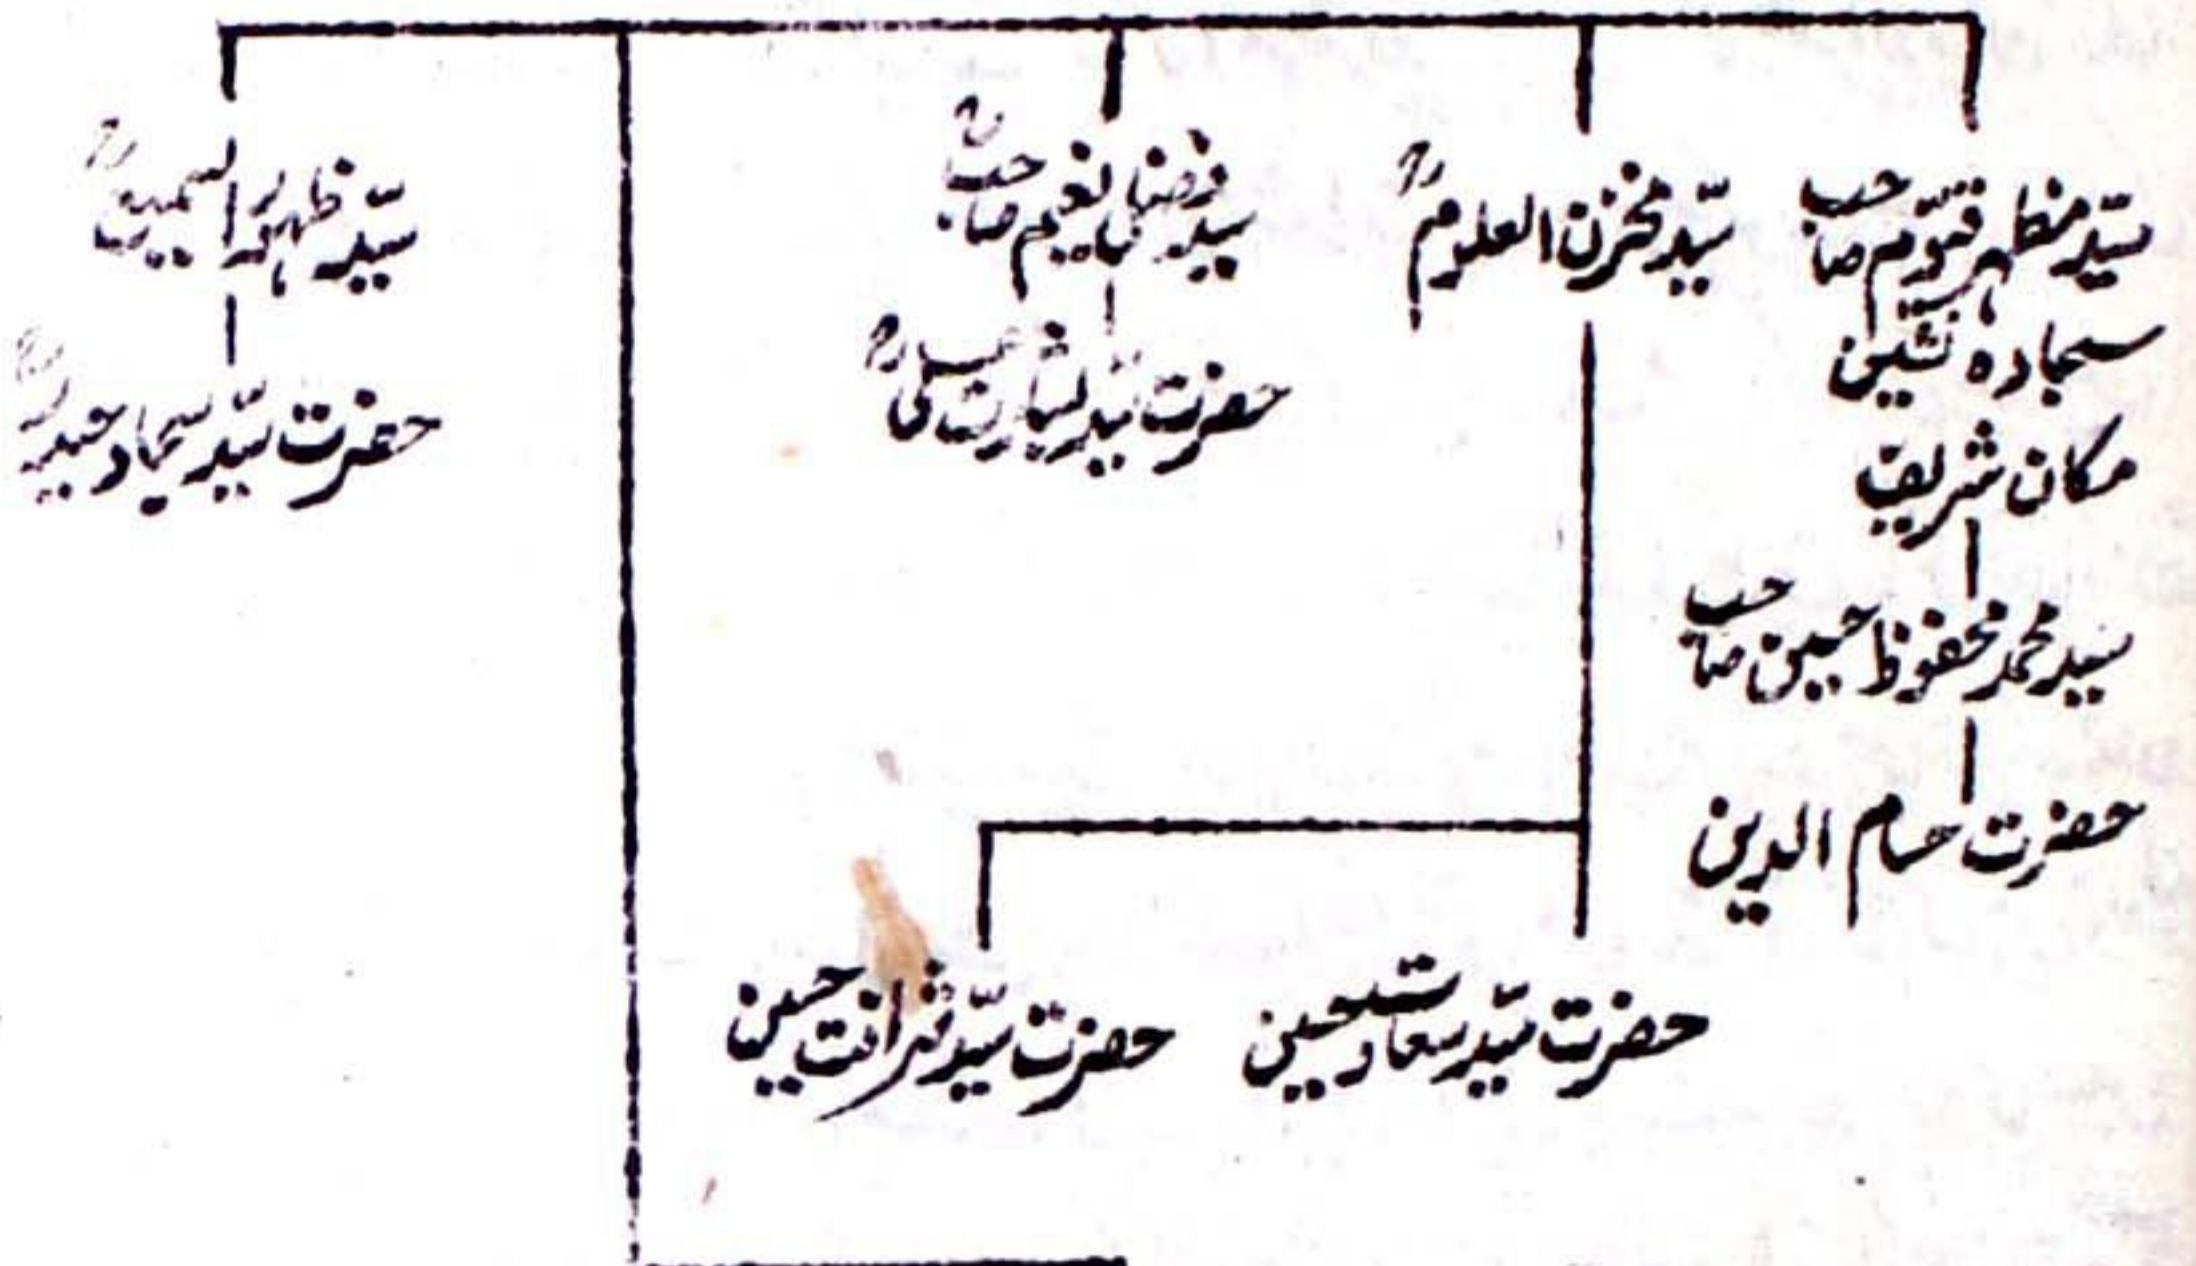 سیّد مظہر قیّوم صاحب
سجادہ نشین
مکان شریف
سید محمد محفوظ حسین صاحب
حضرت حسام الدین
سیّد مخزن العلوم رح
حضرت سیّد سعادت حسین
حضرت سیّد شرافت حسین
سید فضل نعیم صاحب رح
حضرت سید بشارت علی رح
سیّد ظہور
حضرت سیّد سجاد حیدر رح